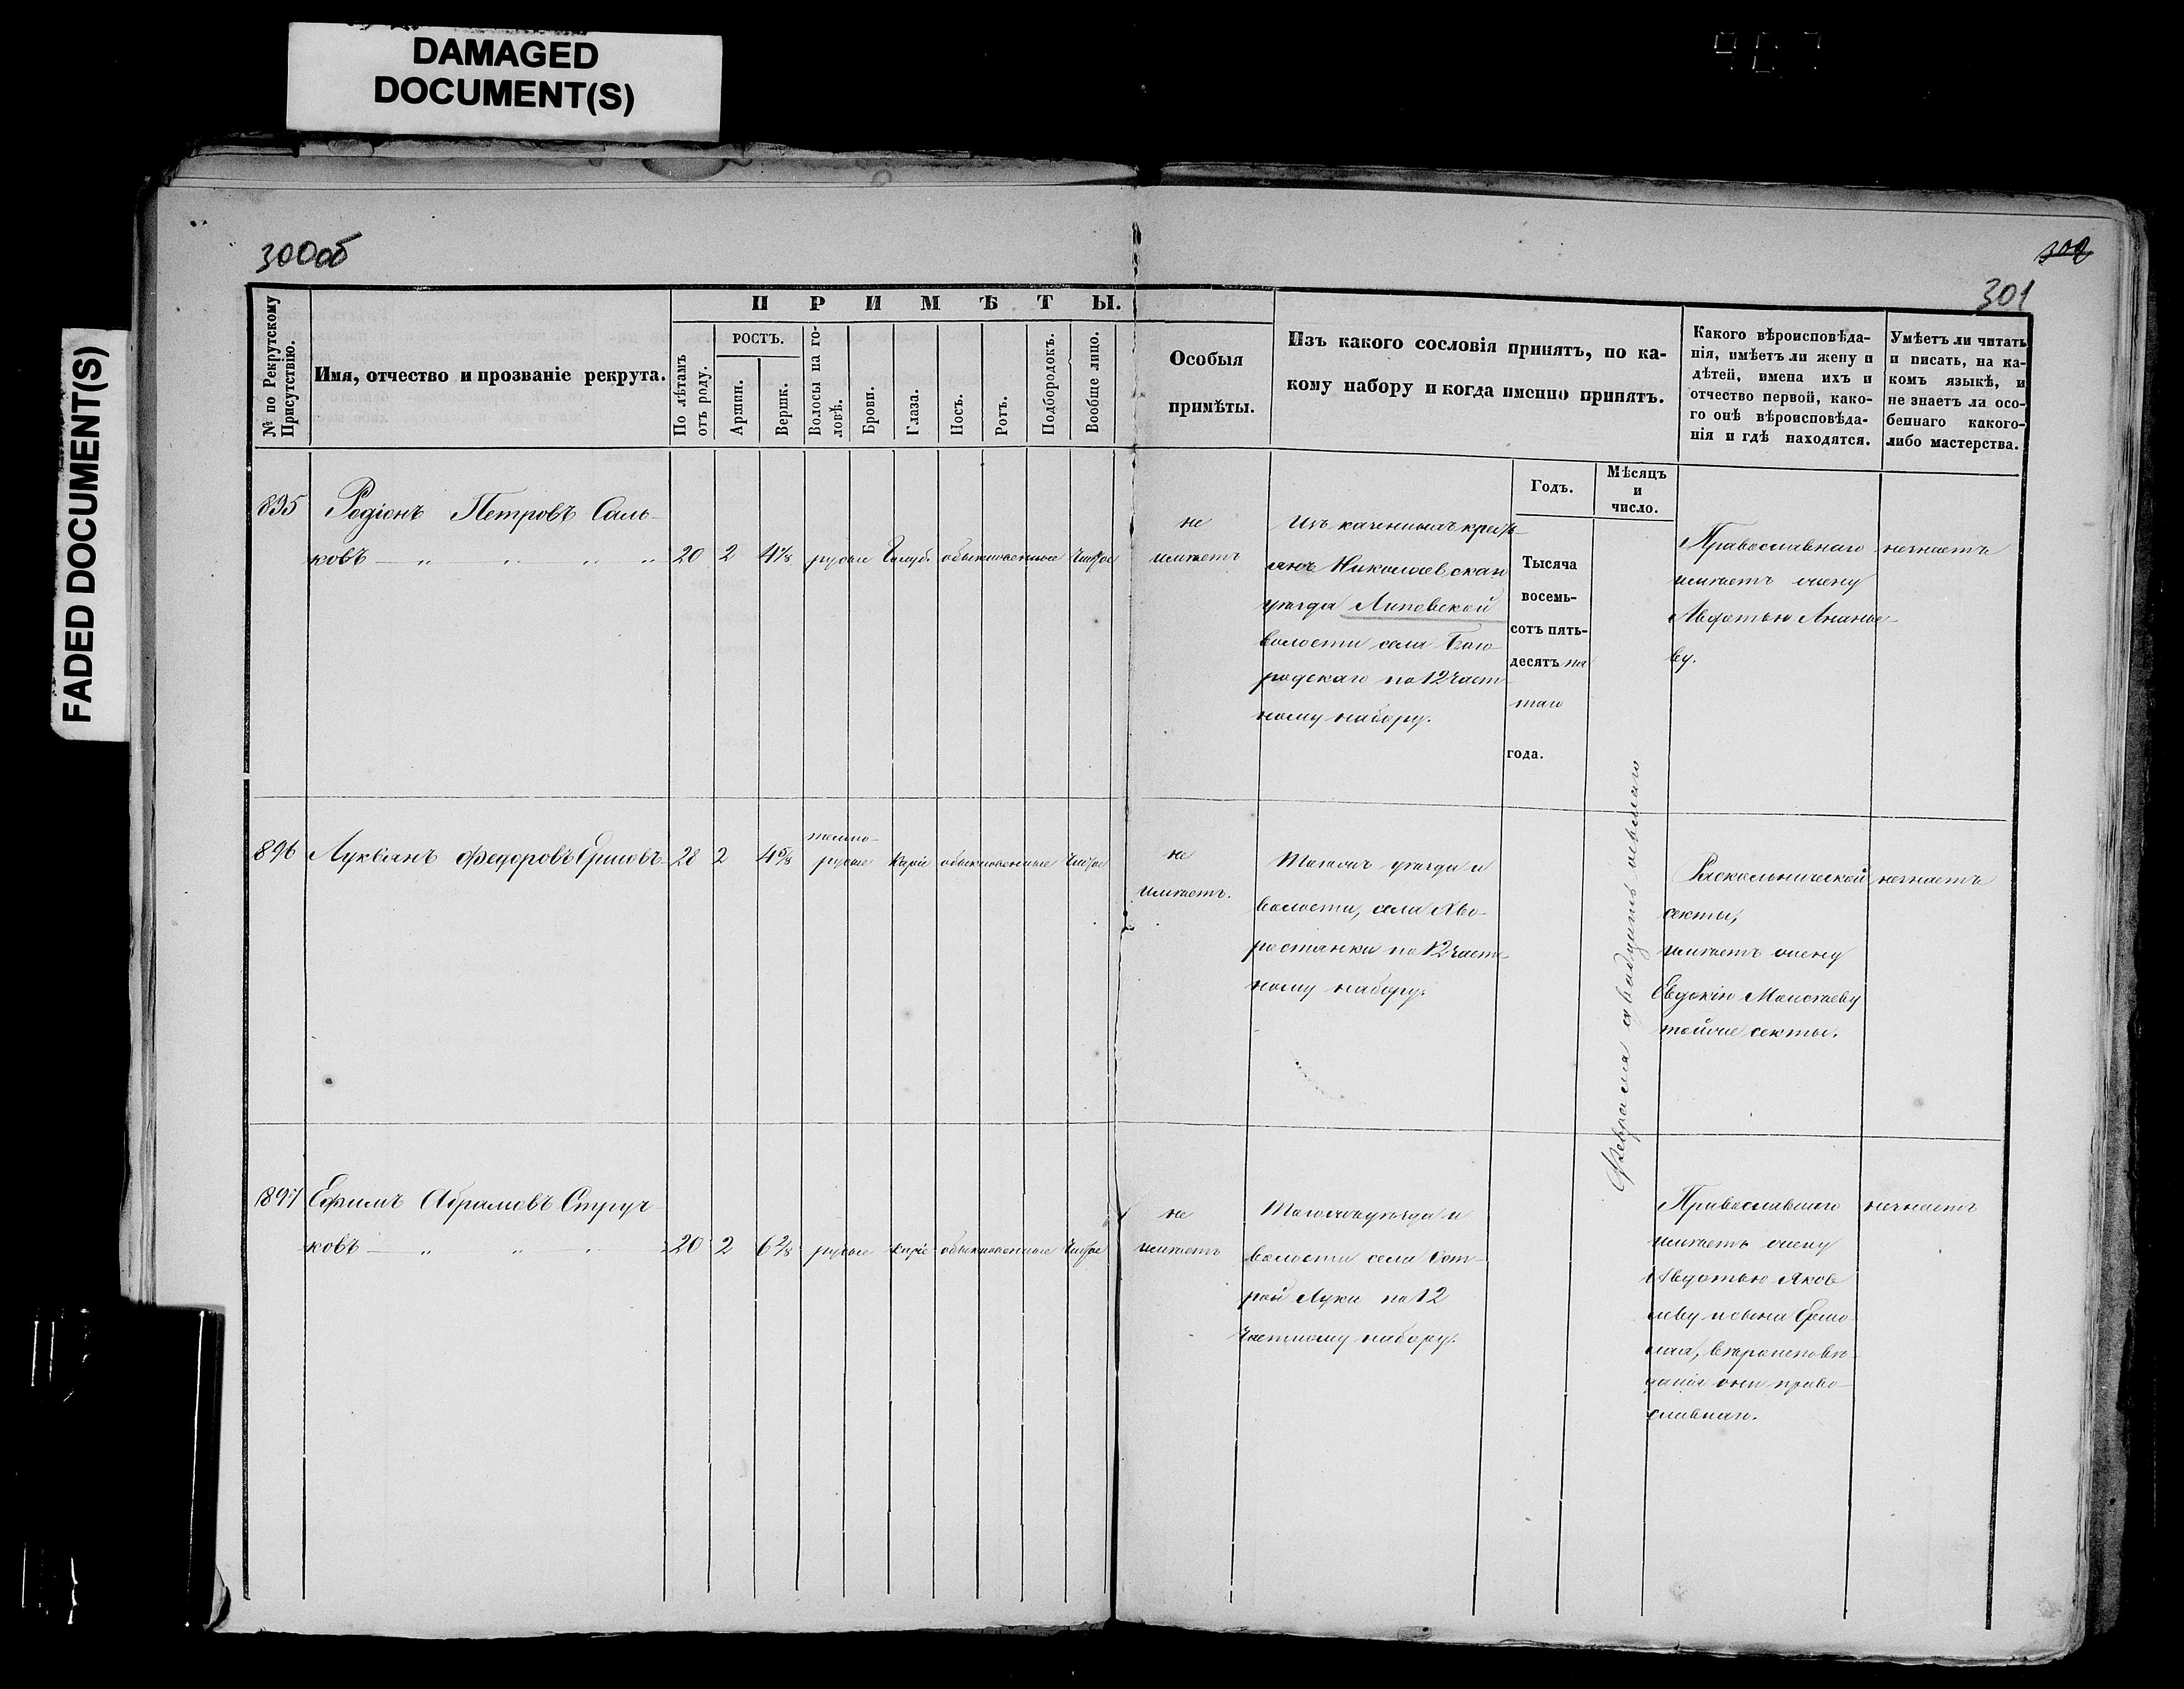 DAMAGED
DOCUMENT(S)
FADED DOCUMENT(S)
300об
302
301
№ по Рекрутскому
Присутствію.
Имя, отчество и прозваніе рекрута.
ПРИМѢТЫ.
По лѣтамъ
отъ роду.
РОСТЪ.
Аршин.
Вершк.
Волосы на го-
ловѣ.
Брови.
Глаза.
Носъ.
Ротъ.
Подбородокъ.
Вообще лицо.
Особыя
примѣты.
Изъ какого сословія принятъ, по ка-
кому набору и когда именно принятъ.
Годъ.
Мѣсяцъ
и
число.
Какого вѣроисповѣда-
нія, имѣетъ ли жену и
дѣтей, имена ихъ и
отчество первой, како-
го онѣ вѣроисповѣда-
нія и гдѣ находятся.
Умѣетъ ли читать
и писать, на ка-
комъ языкѣ, и
не знаетъ ли осо-
беннаго какого-
либо мастерства.
895
Родіонъ Петровъ Саль-
ковъ — „ „ „ „
20 2 русые Голуб. обыкновенные Чистое
не
имѣетъ
Изъ казенныхъ крестъ-
янъ Николаевскаго
уѣзда Липовской
волости села Бого-
родскаго по 12 част-
ному набору.
Тысяча
восемь-
сотъ пять-
десятъ пя
таго
года.
Февраля двадцать осьмаго
Православнаго
имѣетъ жену
Авдотью Ананье-
ву.
незнаетъ
896
Лукьянъ Федоровъ Ершовъ
28 2 4⅝ темно-
русые Каріе обыкновенные Чистое
не
имѣетъ.
Тогожъ уѣзда и
волости, села Хво-
ростянки по 12 част-
ному набору.
Раскольнической
секты,
имѣетъ жену
Евдокію Моисѣеву
тойже секты.
незнаетъ
897
Ефимъ Абрамовъ Струч-
ковъ — „ „ „
20 2 6⅔ русые Каріе обыкновенные Чистое
не
имѣетъ
Тогожъ уѣзда и
волости села Ост-
рой Луки по 12
частному набору.
Православнаго
имѣетъ жену
Авдотью Яков
леву и сына Ермо
лая, вѣроисповѣ-
данія они право-
славнаго.
незнаетъ